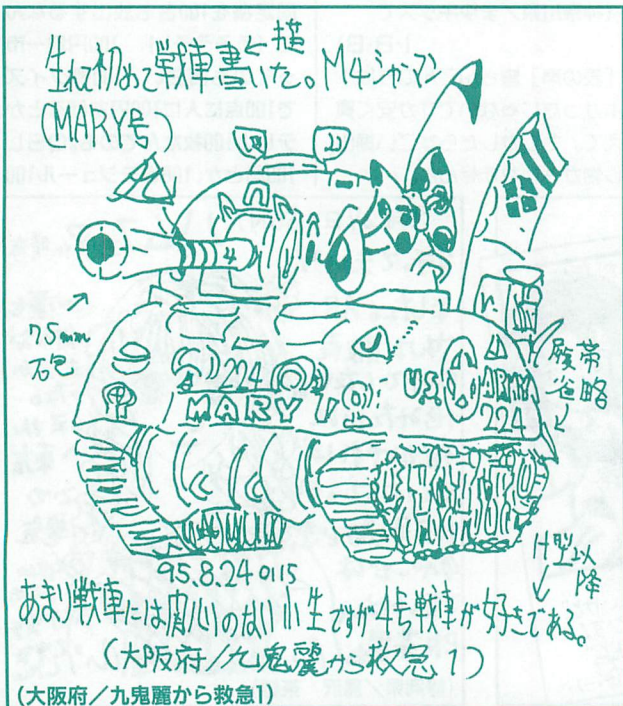 生れて初めて戦車書いた M4シャーマン
描
(MARY号)
75mm
砲
224
MARY
U.S. ARMY
224
95.8.24 0115
H型以降
あまり戦車には関心のない小生ですが4号戦車が好きである。
(大阪府/九鬼麗から救急1)
(大阪府/九鬼麗から救急1)